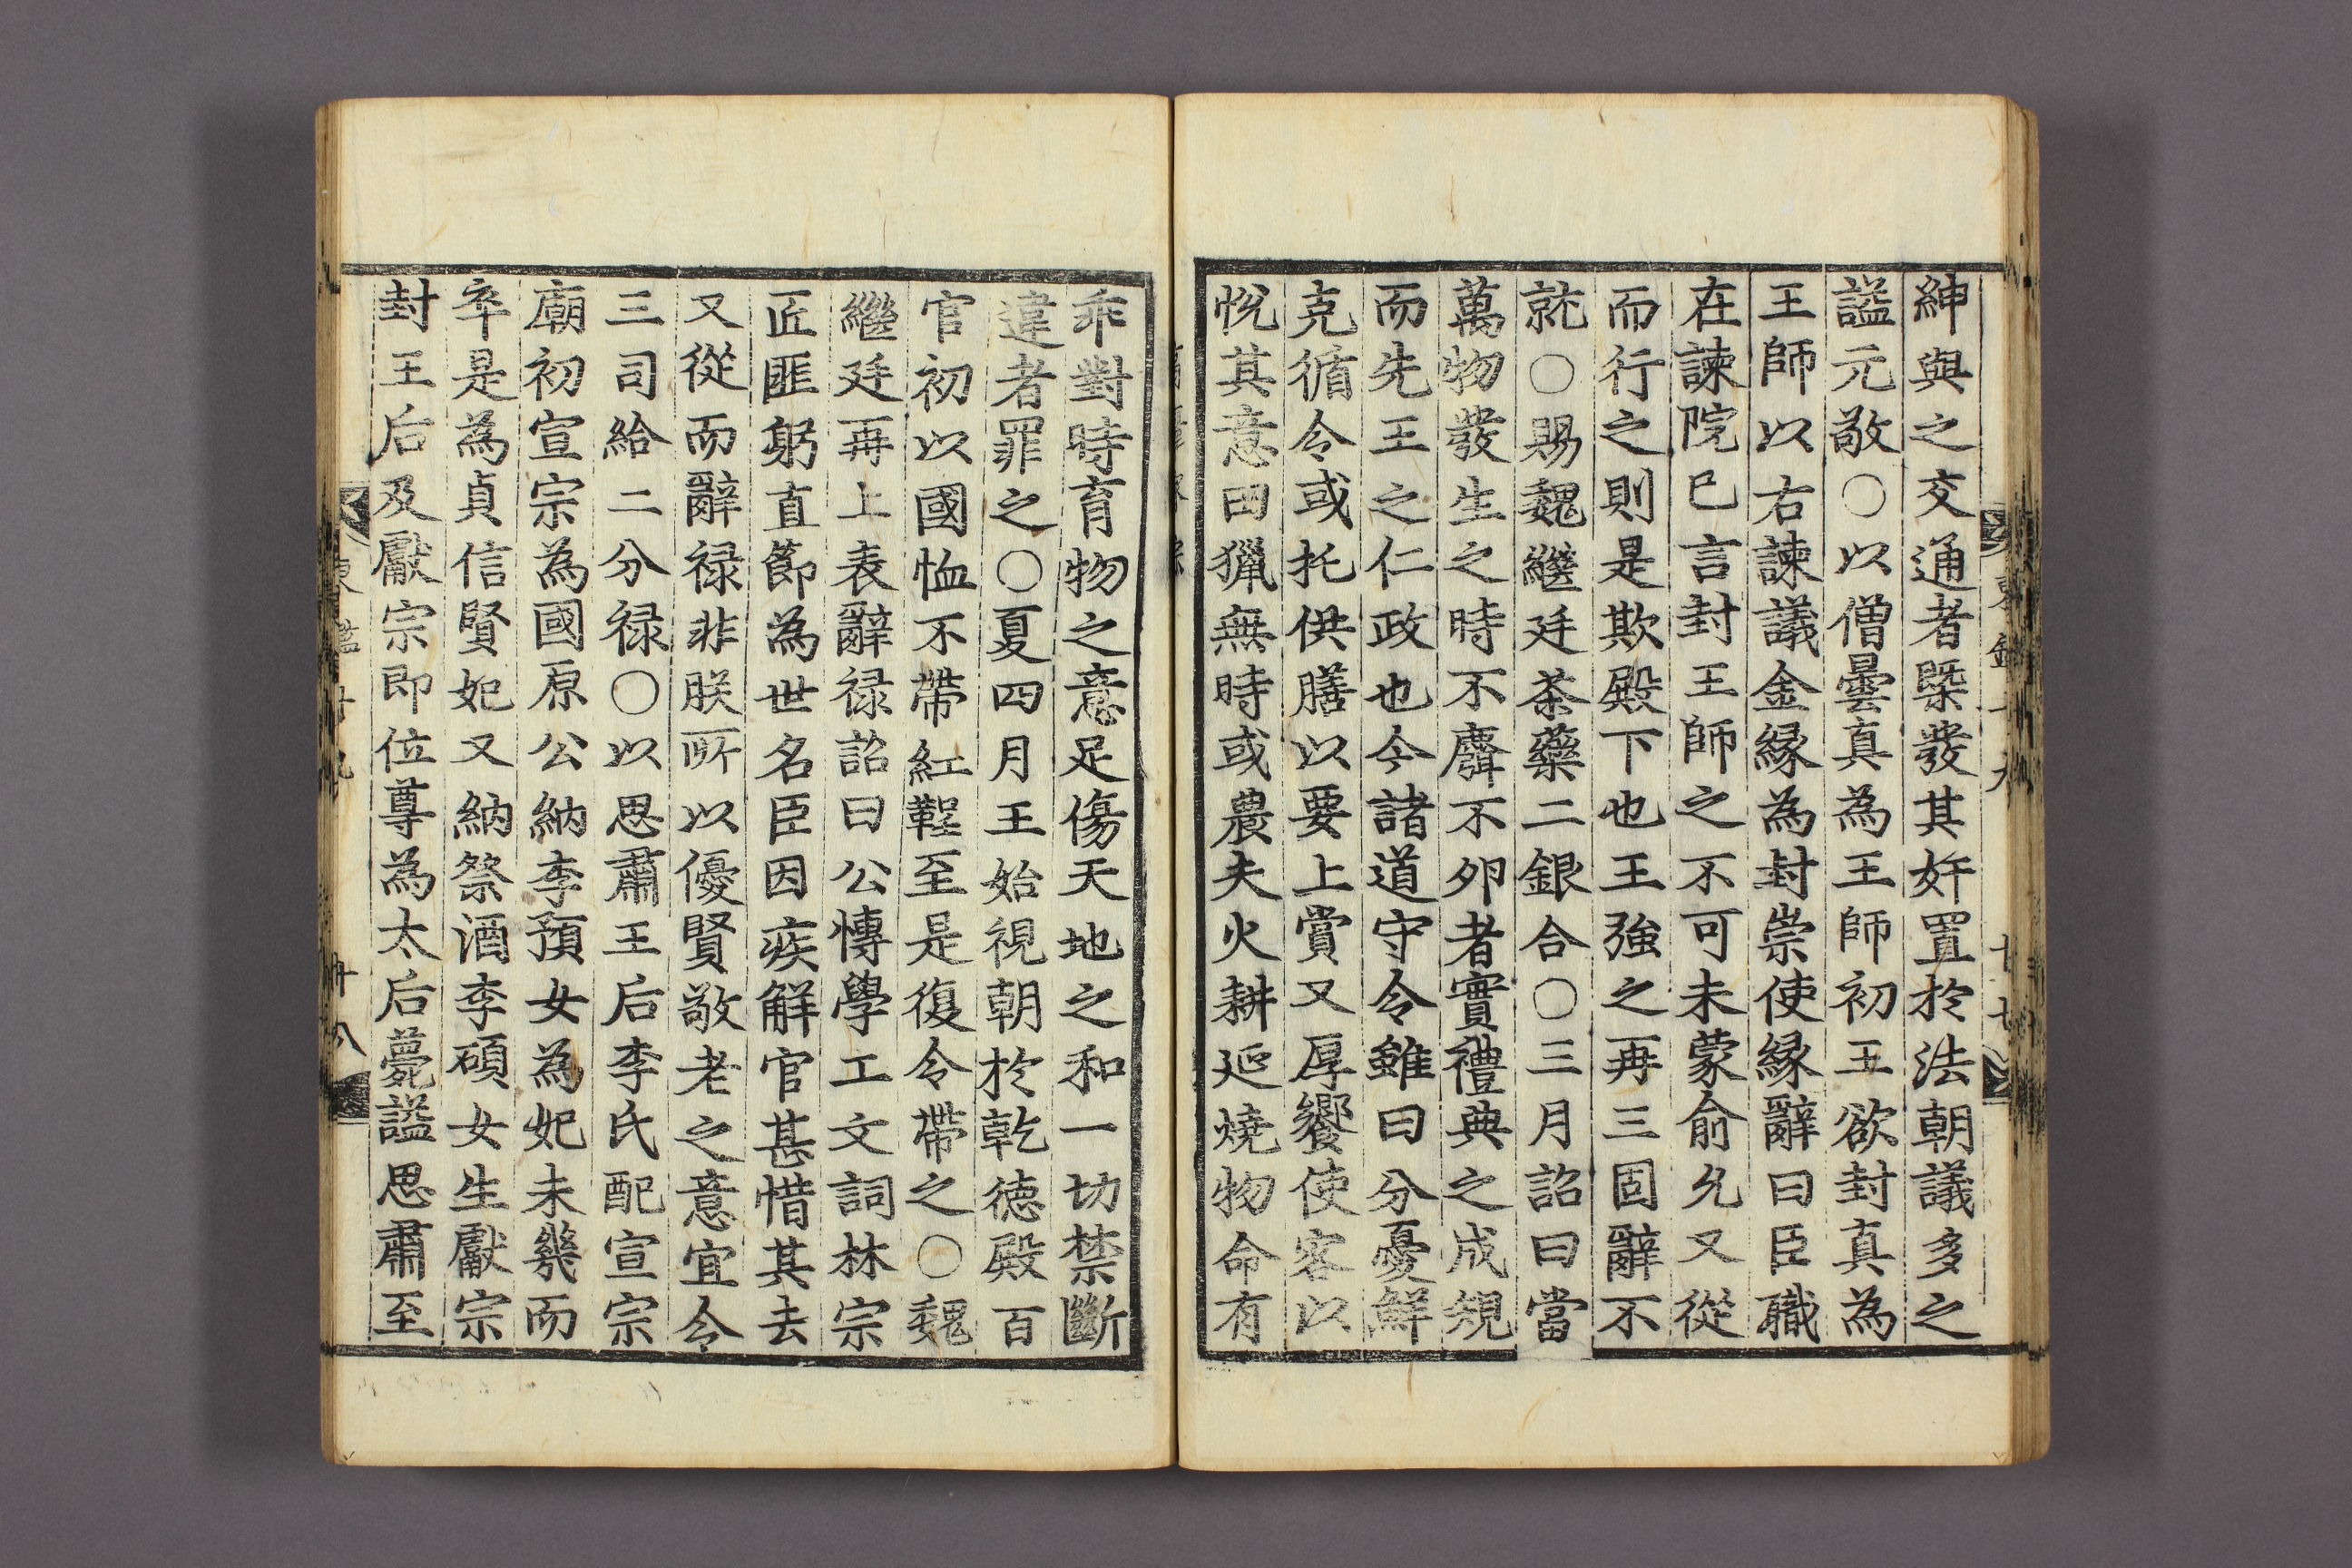 紳與之交通者槩發其奸置於法朝議多之
謚元敬○以僧曇真為王師初王欲封真為
王師以右諫議金緣為封崇使緣辭曰臣職
在諫院已言封王師之不可未蒙俞允又從
而行之則是欺殿下也王強之再三固辭不
就○賜魏繼廷茶藥二銀合○三月詔曰當
萬物發生之時不麛不卵者實禮典之成規
而先王之仁政也今諸道守令雖曰分憂鮮
克循令或托供膳以要上賞又厚饗使客以
悅其意田獵無時或農夫火耕延燒物命有
乖對時育物之意足傷天地之和一切禁斷
違者罪之○夏四月王始視朝於乾德殿百
官初以國恤不帶紅鞓至是復令帶之○魏
繼廷再上表辭祿詔曰公慱學工文詞林宗
匠匪躬直節為世名臣因疾解官甚惜其去
又從而辭祿非朕所以優賢敬老之意宜令
三司給二分祿○以思肅王后李氏配宣宗
廟初宣宗為國原公納李預女為妃未幾而
卒是為貞信賢妃又納祭酒李碩女生獻宗
封王后及獻宗即位尊為太后薨謚思肅至